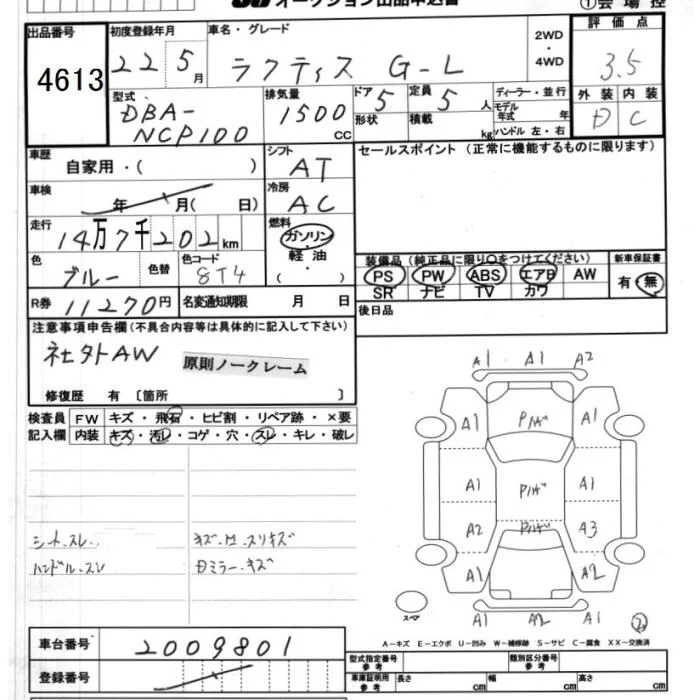 オークション出品申込書
①会場控
出品番号
4613
初度登録年月
22 5月
車名・グレード
ラクティス G-L
2WD
・
4WD
評価点
3.5
外装 内装
D C
型式
DBA-
NCP100
排気量
1500
CC
ドア 5
形状
定員 5 人
積載 kg
ディーラー・並行
モデル年式 年
ハンドル 左・右
車歴
自家用・( )
シフト
AT
セールスポイント (正常に機能するものに限ります)
車検
年 月( 日)
冷房
AC
走行
14万7千202km
燃料
ガソリン・軽油・( )
色
ブルー
色替
色コード
8T4
装備品 (純正品に限り○をつけてください)
PS PW ABS エアB AW
SR ナビ TV カワ
新車保証書
有・無
R券
11270円
名変通知期限 月 日
後日品
注意事項申告欄 (不具合内容等は具体的に記入して下さい)
社外AW
原則ノークレーム
修復歴 有 〔箇所 〕
検査員
記入欄
FW キズ・飛石・ヒビ割・リペア跡・×要
内装 キズ・汚レ・コゲ・穴・スレ・キレ・破レ
シート.スレ.
ハンドル.スレ
キズ.凹.スリキズ
Dミラー.キズ
A1 A1 A2
A1 Pハゲ A1
A1 Pハゲ A1
A2 Pハゲ A3
A1 A2
A1 A2 A1
スペア
A-キズ E-エクボ U-凹み W-補修跡 S-サビ C-腐食 XX-交換済
車台番号
2009801
登録番号
型式指定番号
参考
類別区分番号
参考
車庫証明用
参考
長さ cm 幅 cm 高さ cm